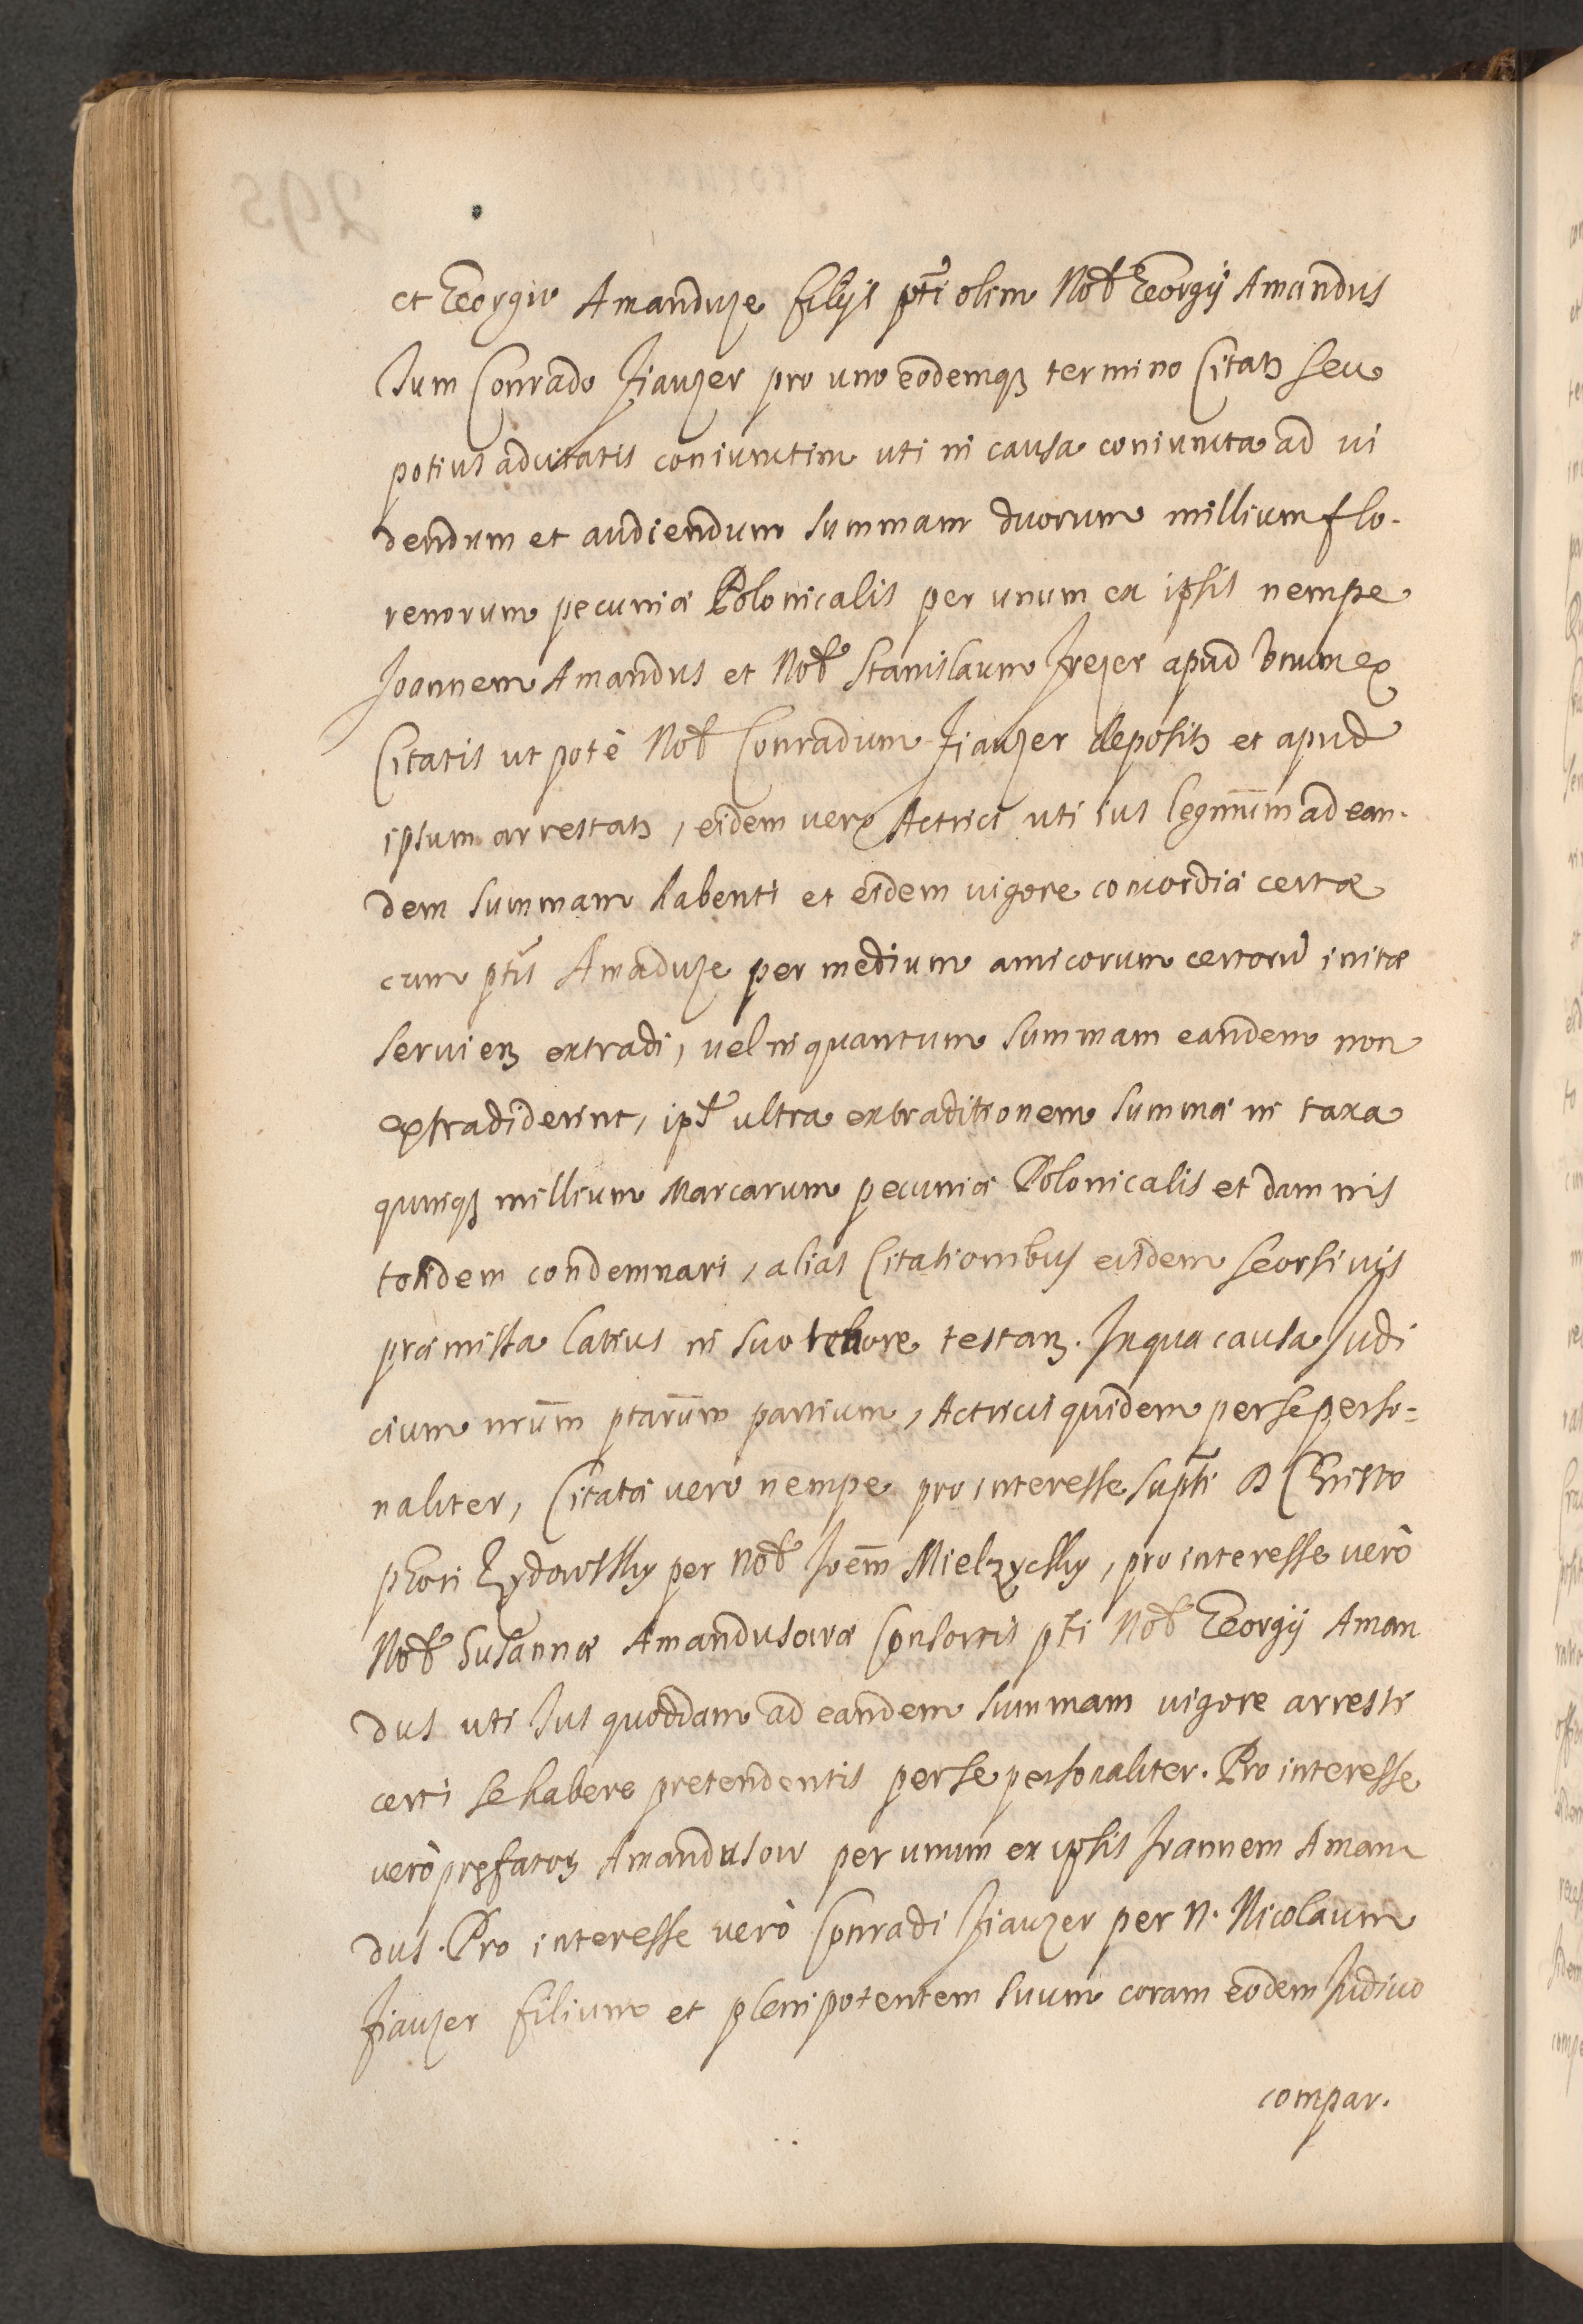 et Georgio Amanduze filijs pti olim Nob Georgij Amandus
Cum Conrado Fiauzer pro uno eodemqз termino Citatз seu
potius adcitatis coniunctim uti in causa coniuncta ad vi
dendum et audiendum summam duorum millium flo-
renorum pecuniæ Polonicalis per unum ex ipsis nempe
Joannem Amandus et Nob Stanislaum Frezer apud Unum ex
Citatis ut potè Nob Conradum Fiauzer depositз et apud
ipsum arrestatз, eidem vero Actrici uti ius legittimum ad ean-
dem summam habenti et eidem vigore concordiæ certæ
cum ptis Amaduze per medium amicorum certorũ initæ
servienз extradi, vel in quantum summam eandem non
extradiderint, ipst ultra extraditionem summæ in taxa
quinqз millium Marcarum pecuniæ Polonicalis et damnis
totidem condemnari, alias Citationibus eisdem seorsivis
præmissa latius in suo tenore testanз. In qua causa Judi
cium nrūm ptarūm partium, Actricis quidem per se perso=
naliter, Citatæ verò nempe pro interesse supti D Christo
phori Zydowsky per Nob Joēm Mielzycky, pro interesse verò
Nob Susannæ Amandusowa Consortis pti Nob Georgij Aman
dus uti Jus quoddam ad eandem summam vigore arresti
certi se habere pretendentis per se personaliter. Pro interesse
verò prefatorз Amandusow per unum ex ipsis Joannem Aman
dus. Pro interesse verò Conradi Fiauzer per N. Nicolaum
Fiauzer filium et plenipotentem suum coram eodem Judicio
compar.
295